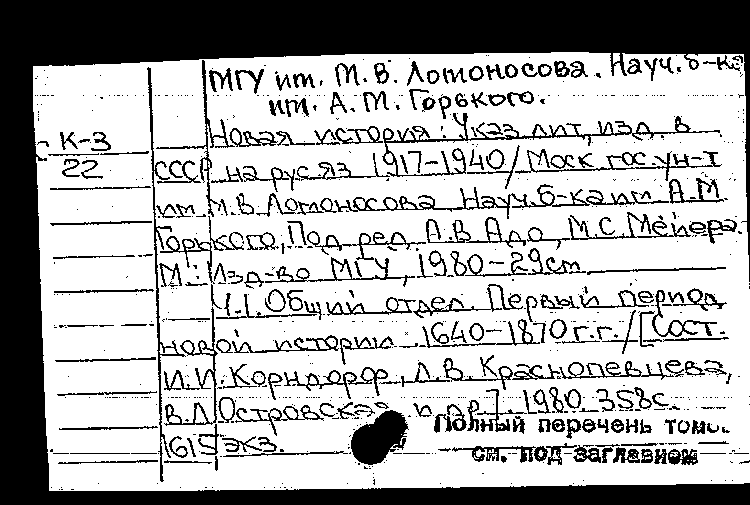 МГУ им. М.В. Ломоносова. Науч. б-ка
им. А.М. Горького.
К-3
22
Новая история: Указ лит, изд. в
СССР на рус яз 1917-1940/Моск. гос. ун-т
им. М.В Ломоносова Науч. б-ка им А.М
Горького, Под ред. А.В Адо, М.С. Мейера.
М.: Изд-во МГУ, 1980-29см
Ч.1. Общий отдел. Первый период
новой истории. 1640-1870 г.г./[Сост.
И.И. Корндорф, Л.В. Краснопевцева,
В.Л Островская и др]. 1980. 358с.
1615 экз.
Полный перечень томов
см. под заглавием